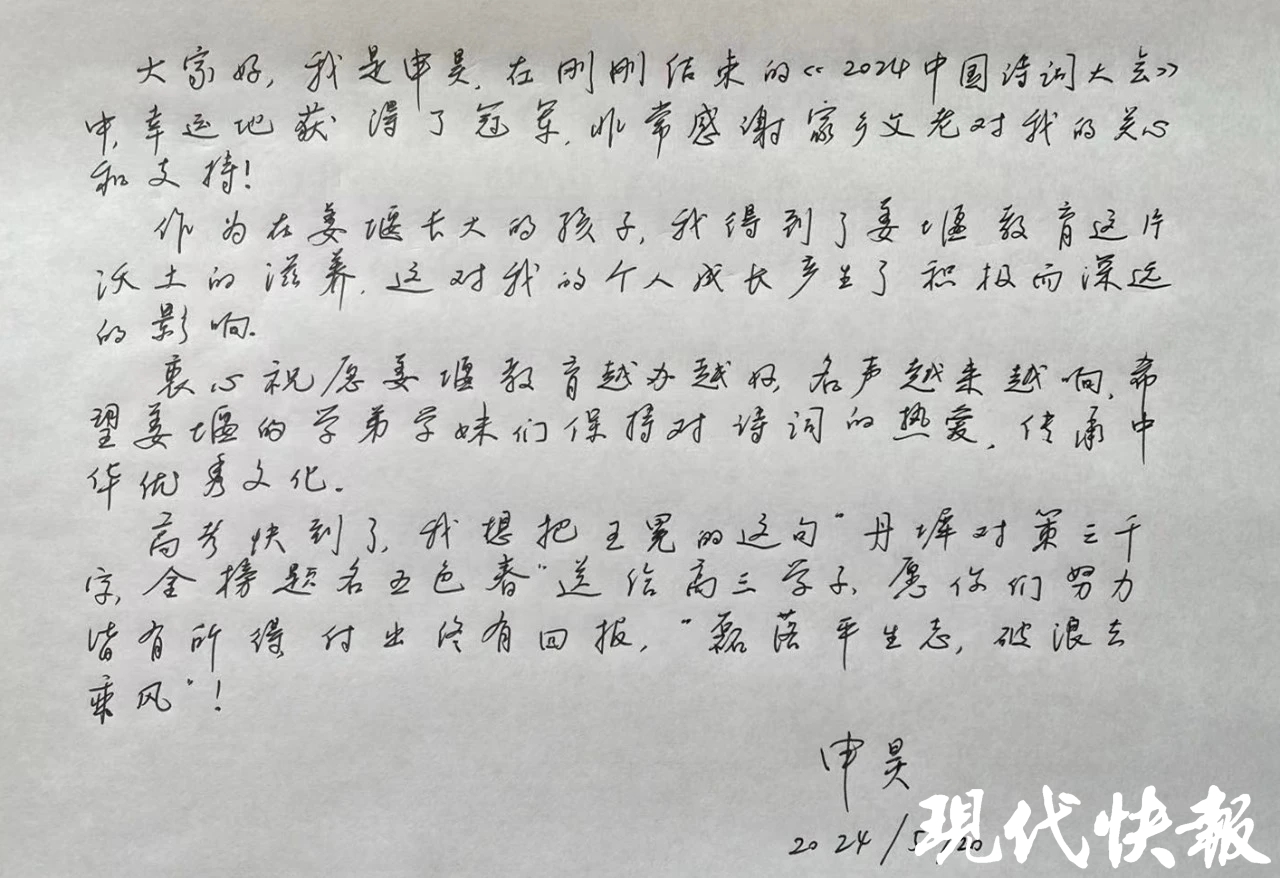 大家好,我是申昊,在刚刚结束的《2024中国诗词大会》
中,幸运地获得了冠军,非常感谢家乡父老对我的关心
和支持!
作为在姜堰长大的孩子,我得到了姜堰教育这片
沃土的滋养,这对我的个人成长产生了积极而深远
的影响.
衷心祝愿姜堰教育越办越好,名声越来越响,希
望姜堰的学弟学妹们保持对诗词的热爱,传承中
华优秀文化.
高考快到了,我想把王冕的这句"丹墀对策三千
字,金榜题名五色春"送给高三学子,愿你们努力
皆有所得,付出终有回报,"磊落平生志,破浪去
乘风"!
申昊
2024/5/20
现代快报